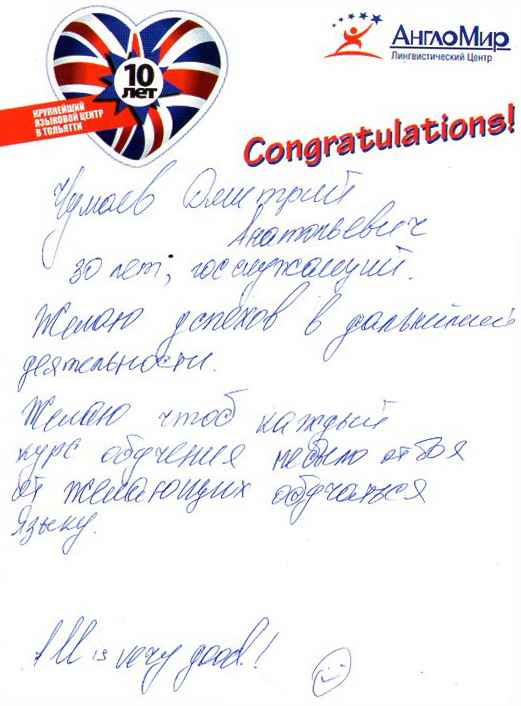 10
ЛЕТ
КРУПНЕЙШИЙ
ЯЗЫКОВОЙ ЦЕНТР
В ТОЛЬЯТТИ
АнглоМир
Лингвистический Центр
Congratulations!
Чумаев Дмитрий
Анатольевич
30 лет, госслужащий.
Желаю успехов в дальнейшей
деятельности.
Желаю чтоб каждый
курс обучения небыло отбоя
от желающих обучаться
языку.
All is very good!